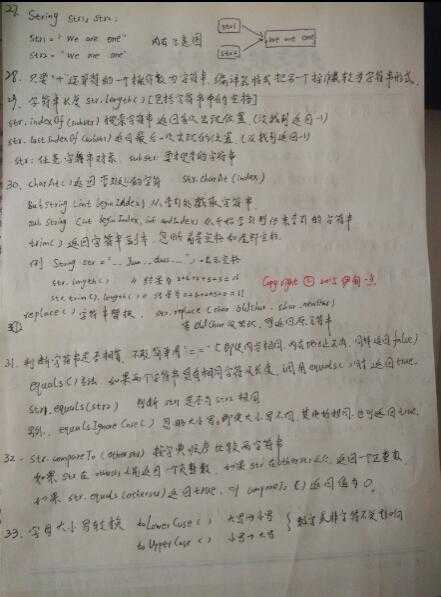 27. String str1, str2;
str1 = "we are one"
str2 = "we are one" 内存示意图
str1
str2
we are one
28. 只要"+"运算符的一个操作数为字符串,编译器就会把另一个操作数转为字符串形式.
29. 字符串长度 str.length() [包括字符串中的空格]
str.indexOf(substr) 搜索字符 返回首次出现位置 (没找到返回-1)
str.lastIndexOf(substr) 返回最后一次出现的位置 (没找到返回-1)
str: 任意字符串对象. substr 要搜索的字符串
30. charAt() 返回索引处的字符 str.charAt(index)
substring(int beginIndex) 从索引处截取字符串
substring(int beginIndex, int endIndex) 从开始索引到结束索引的字符串
trim() 返回字符串副本, 忽略前导空格和尾部空格.
例 String str = " " 表示空格
str.length(); // 结果为
str.trim().length() // 结果为
Copyright © 2015
replace() 字符串替换. str.replace(char oldChar, char newChar)
若oldChar没出现, 则返回原字符串
31. 判断字符串是否相等, 不能简单用"==" (即使内容相同, 内存地址不同, 同样返回false)
equals()方法. 如果两个字符串具有相同字符及长度, 调用equals()时返回true.
str1.equals(str2) 判断str1是否与str2相同
另外, equalsIgnoreCase() 忽略大小写, 即使大小写不同, 其他的相同, 也可返回true.
32. str.compareTo(otherstr) 按字典顺序比较两字符串
如果str在otherstr之前返回一个负整数, 如果str在otherstr之后, 返回一个正整数.
如果 str.equals(otherstr)返回true, 则 compareTo的返回值为0.
33. 字母大小写转换 toLowerCase() 大写→小写
toUpperCase() 小写→大写 数字或非字符不受影响